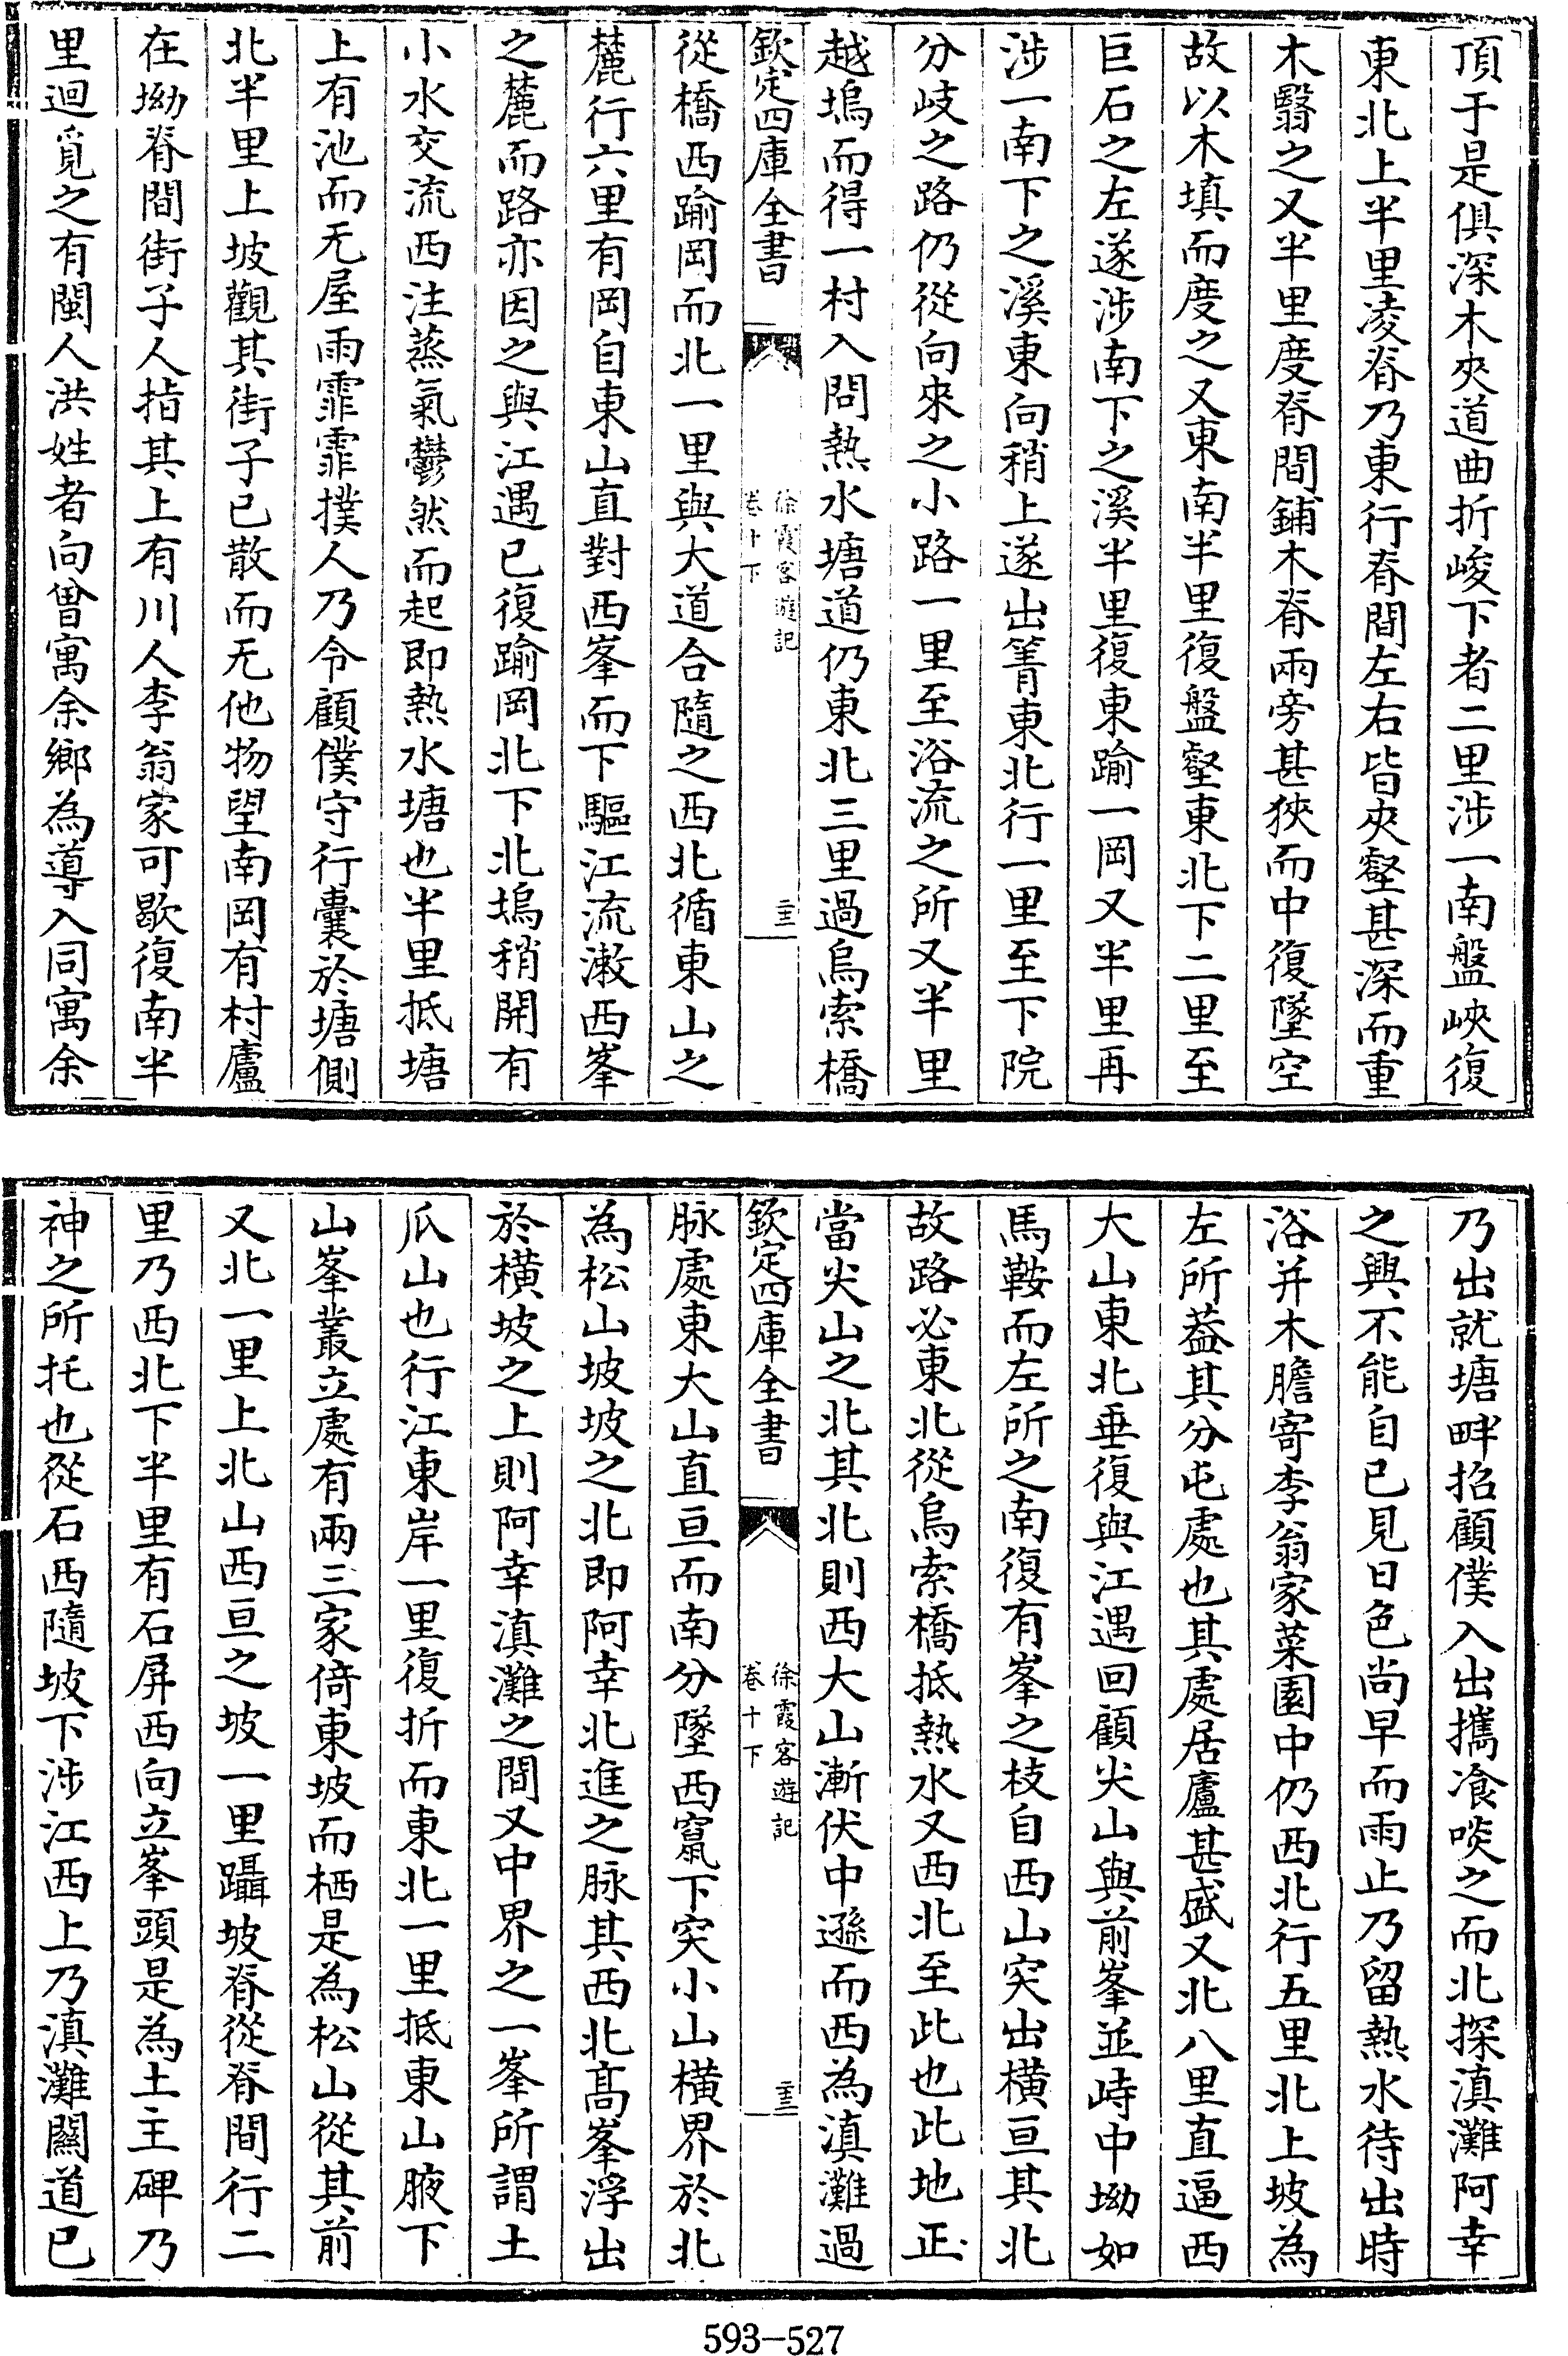 頂于是俱深木夾道曲折峻下者二里涉一南盤峽復
東北上半里凌脊乃東行脊間左右皆夾壑甚深而重
木翳之又半里度脊間鋪木脊兩旁甚狹而中復墜空
故以木填而度之又東南半里復盤壑東北下二里至
巨石之左遂涉南下之溪半里復東踰一岡又半里再
涉一南下之溪東向稍上遂出箐東北行一里至下院
分歧之路仍從向來之小路一里至浴流之所又半里
越塢而得一村入問熱水塘道仍東北三里過烏索橋
欽定四庫全書
徐霞客遊記
卷十下
從橋西踰岡而北一里與大道合隨之西北循東山之
麓行六里有岡自東山直對西峯而下驅江流漱西峯
之麓而路亦因之與江遇已復踰岡北下北塢稍開有
小水交流西注蒸氣鬱然而起即熱水塘也半里抵塘
上有池而无屋雨霏霏撲人乃令顧僕守行囊於塘側
北半里上坡觀其街子已散而无他物望南岡有村廬
在坳脊間街子人指其上有川人李翁家可歇復南半
里迴覓之有閩人洪姓者向曾寓余鄉為導入同寓余
乃出就塘畔招顧僕入出攜飡啖之而北探滇灘阿幸
之興不能自已見日色尚早而雨止乃留熱水待出時
浴并木膽寄李翁家菜園中仍西北行五里北上坡為
左所葢其分屯處也其處居廬甚盛又北八里直逼西
大山東北垂復與江遇回顧尖山與前峯並峙中坳如
馬鞍而左所之南復有峯之枝自西山突出橫亘其北
故路必東北從烏索橋抵熱水又西北至此也此地正
當尖山之北其北則西大山漸伏中遜而西為滇灘過
欽定四庫全書
徐霞客遊記
卷十下
脉處東大山直亘而南分墜西竄下突小山橫界於北
為松山坡坡之北即阿幸北進之脉其西北髙峯浮出
於橫坡之上則阿幸滇灘之間又中界之一峯所謂土
瓜山也行江東岸一里復折而東北一里抵東山腋下
山峯叢立處有兩三家倚東坡而栖是為松山從其前
又北一里上北山西亘之坡一里躡坡脊從脊間行二
里乃西北下半里有石屏西向立峯頭是為土主碑乃
神之所托也從石西隨坡下涉江西上乃滇灘關道已
593-527